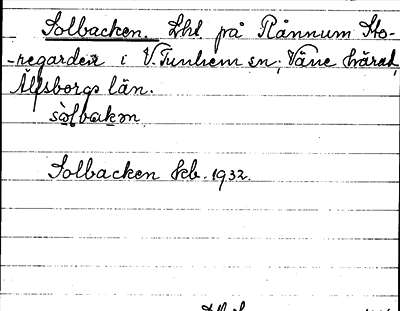 Solbacken. Lht. på Rånnum Sto-
-regården i V. Tunhem sn, Väne härad,
Älfsborgs län.
sòlbakən
Solbacken kb. 1932.